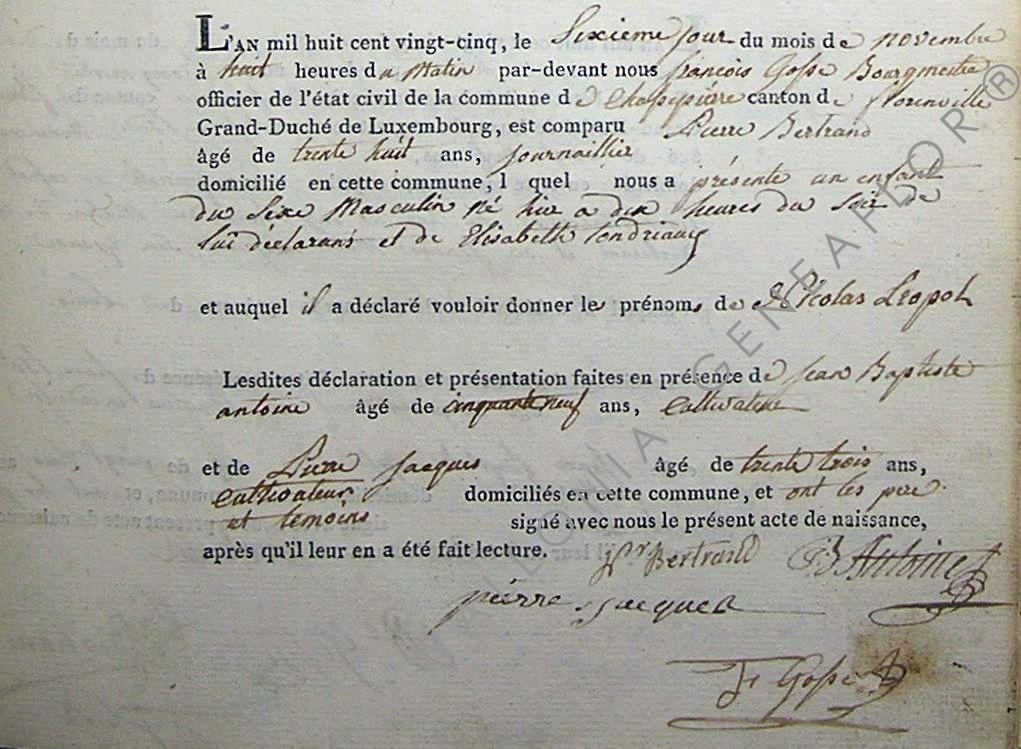 L'AN mil huit cent vingt-cinq, le Sixieme jour du mois de novembre
à huit heures du Matin par-devant nous françois Gosse Bourgmestre
officier de l'état civil de la commune de Chassepierre canton de florenville
Grand-Duché de Luxembourg, est comparu Pierre Bertrand
âgé de trente huit ans, journaillier
domicilié en cette commune, l quel nous a présenté un enfant
du Sexe Masculin né hier a dix heures du Soir de
lui déclarans et de Elisabeth
et auquel il a déclaré vouloir donner les prénoms de Nicolas Leopol
Lesdites déclaration et présentation faites en présence de jean Baptiste
antoine âgé de cinquante neuf ans, Cultivateur
et de Pierre Jacques âgé de trente trois ans,
Cultivateur, domiciliés en cette commune, et ont les père
et temoins signé avec nous le présent acte de naissance,
après qu'il leur en a été fait lecture. Pr Bertrand JB Antoine
pierre jacques
F Gosse
WALLONIA GENEAFLOR ®